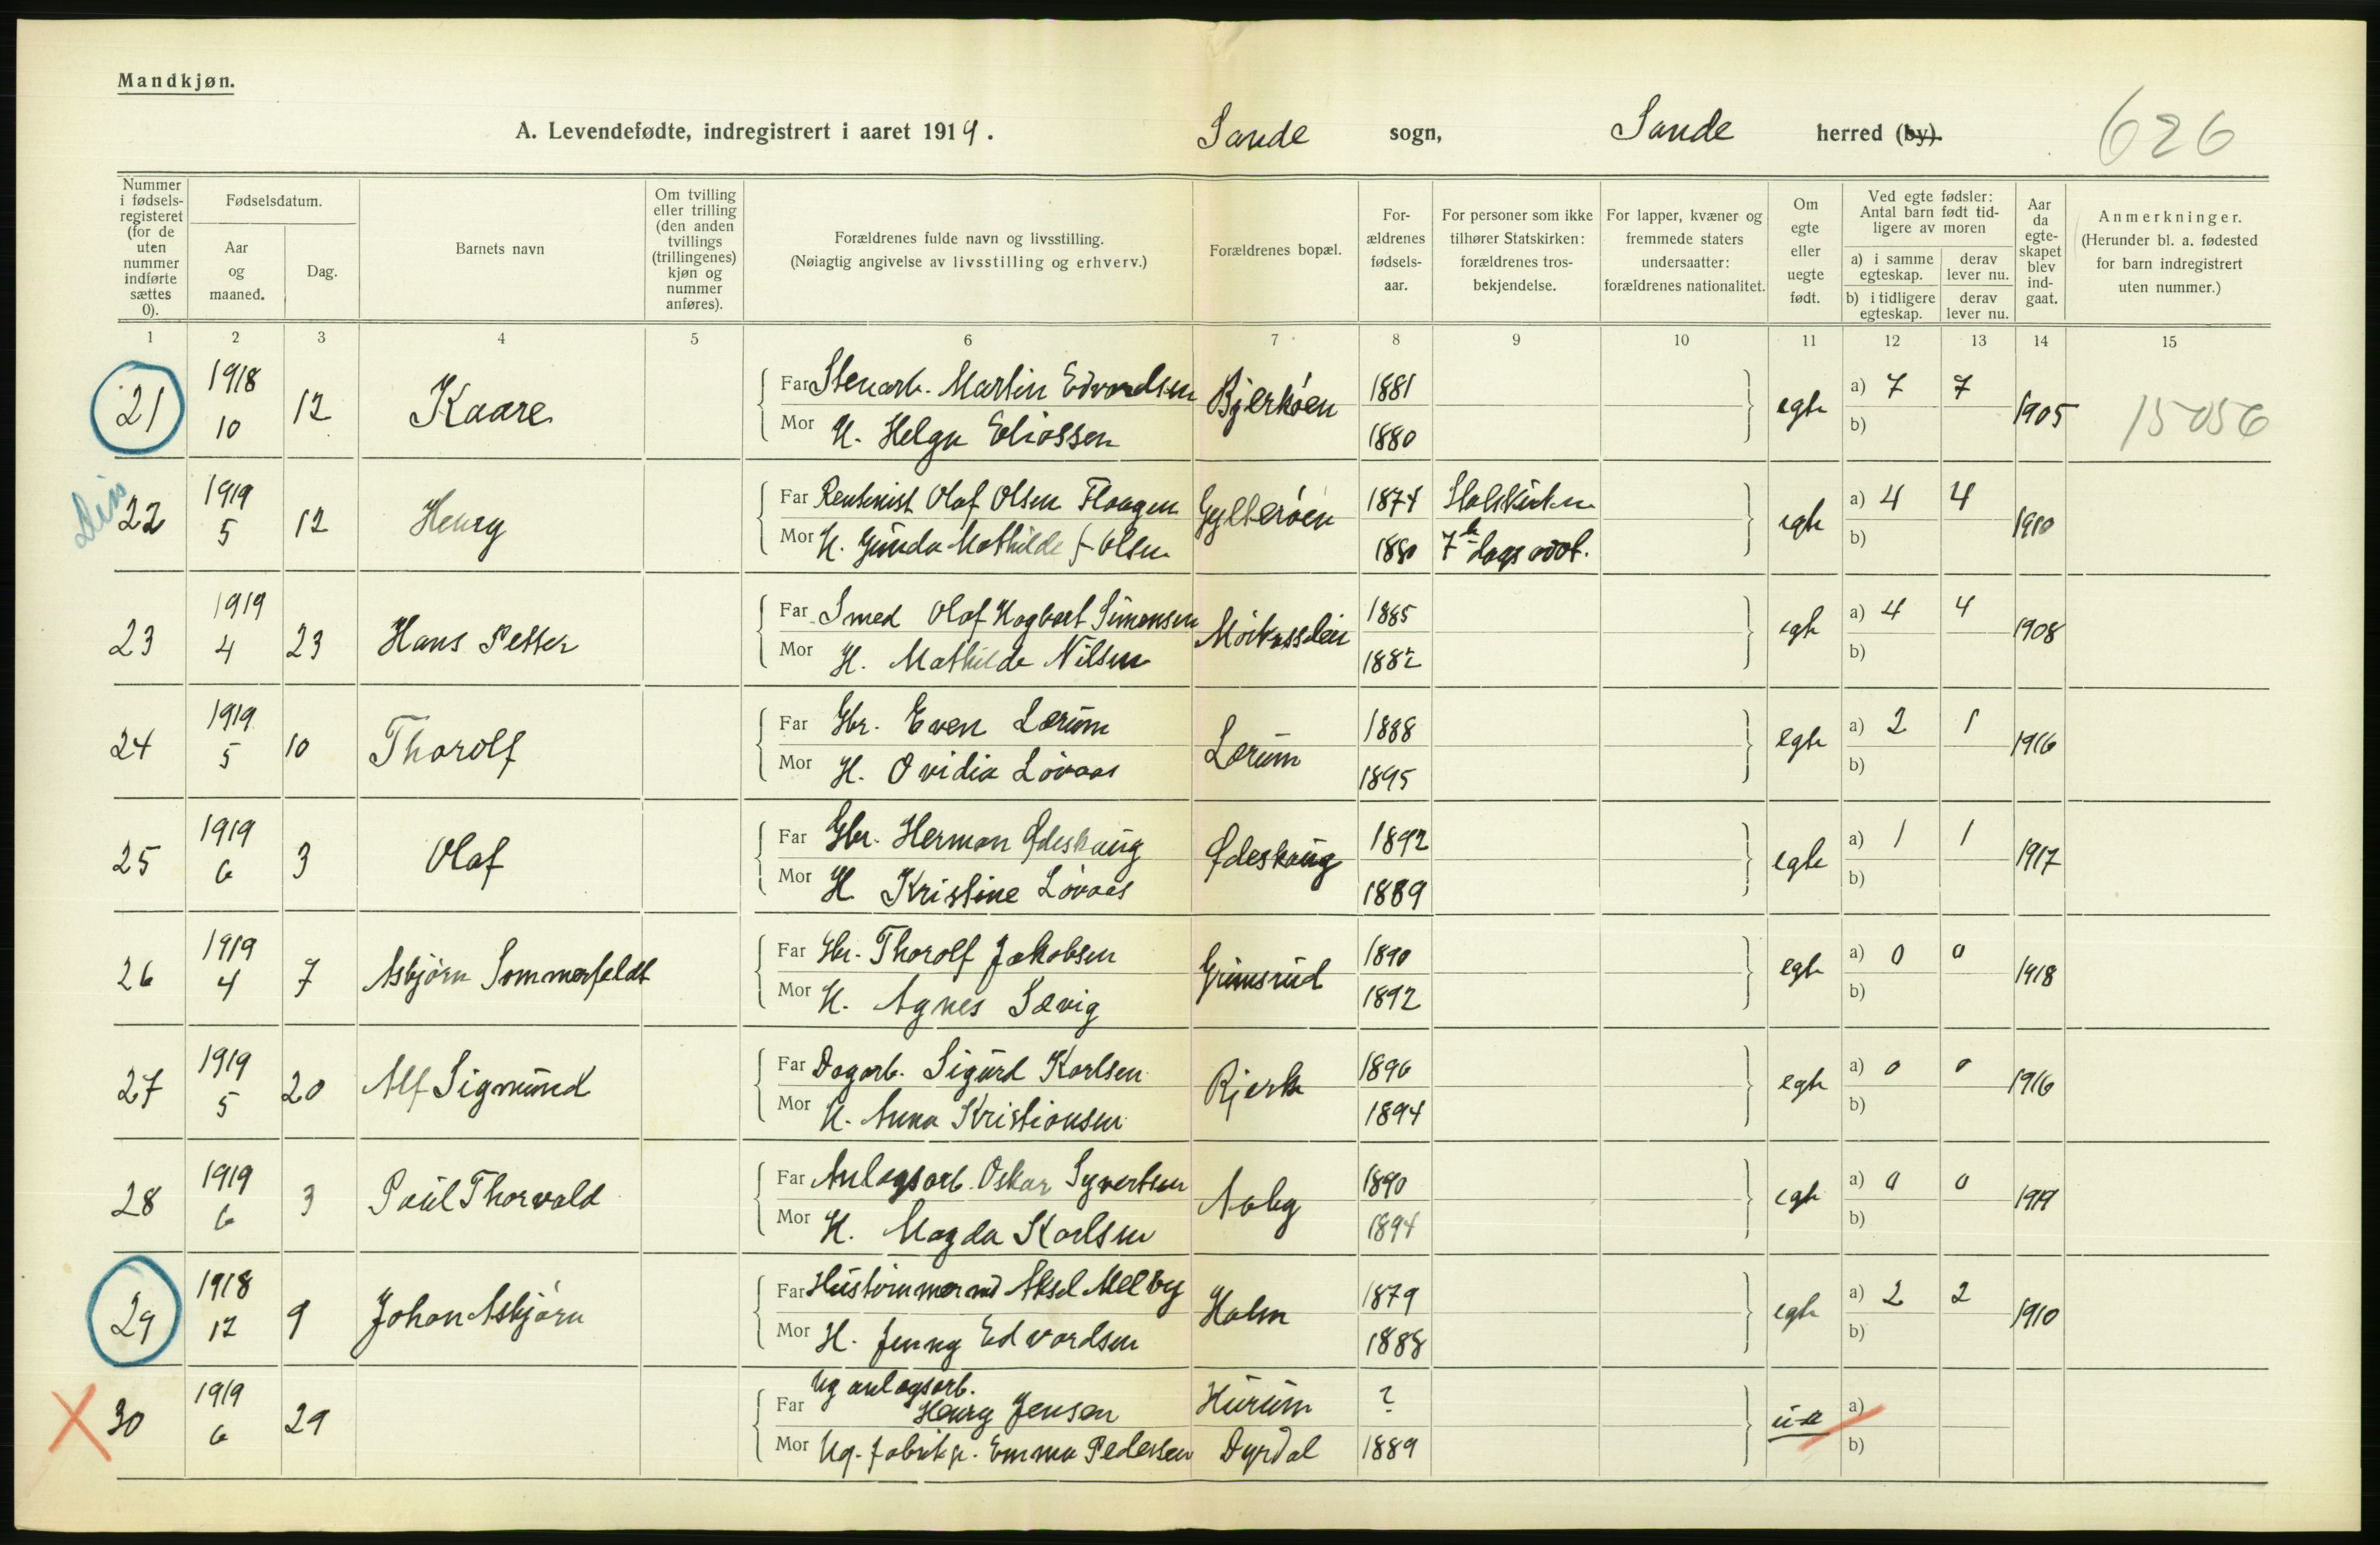 Mandkjøn.
A. Levendefødte, indregistrert i aaret 1919. Sande sogn, Sande herred (by).
626
Nummer i fødsels-registeret (for de uten nummer indførte sættes 0).
Fødselsdatum.
Aar og maaned.
Dag.
Barnets navn
Om tvilling eller trilling (den anden tvillings (trillingenes) kjøn og nummer anføres).
Forældrenes fulde navn og livsstilling.
(Nøiagtig angivelse av livsstilling og erhverv.)
Forældrenes bopæl.
For-ældrenes fødsels-aar.
For personer som ikke tilhører Statskirken: forældrenes tros-bekjendelse.
For lapper, kvæner og fremmede staters undersaatter: forældrenes nationalitet.
Om egte eller uegte født.
Ved egte fødsler: Antal barn født tid-ligere av moren
a) i samme egteskap. derav lever nu.
b) i tidligere egteskap. derav lever nu.
Aar da egte-skapet blev ind-gaat.
Anmerkninger.
(Herunder bl. a. fødested for barn indregistrert uten nummer.)
1 2 3 4 5 6 7 8 9 10 11 12 13 14 15
21 1918 10 12 Kaare
Far Stenarb. Martin Edvardsen Bjerkøen 1881 egte a) 7 7 1905 15056
Mor H. Helga Eliassen 1880 b)
22 1919 5 12 Henry
Far Rentenist Olaf Olsen Haagen 1874 Statskirken egte a) 4 4 1910
Mor H. Gunda Mathilde f. Olsen 1880 7de dags advt. b)
23 1919 4 23 Hans Petter
Far Smed Olaf Hagbart Simensen 1885 egte a) 4 4 1908
Mor H. Mathilde Nilsen 1882 b)
24 1919 5 10 Thorolf
Far Gbr. Even Lærum Lærum 1888 egte a) 2 1 1916
Mor H. Ovidia Løvaas 1895 b)
25 1919 6 3 Olaf
Far Gbr. Herman Ødeskaug Ødeskaug 1892 egte a) 1 1 1917
Mor H. Kristine Løvaas 1889 b)
26 1919 4 7 Asbjørn Sommerfeldt
Far Gbr. Thorolf Jakobsen Grimsrud 1890 egte a) 0 0 1918
Mor H. Agnes Sævig 1892 b)
27 1919 5 20 Alf Sigmund
Far Dagarb. Sigurd Karlsen 1896 egte a) 0 0 1916
Mor H. Anna Kristiansen 1894 b)
28 1919 6 3 Paul Thorvald
Far Anlægsarb. Oskar Syvertsen 1890 egte a) 0 0 1919
Mor H. Magda Karlsen 1894 b)
29 1918 12 9 Johan Asbjørn
Far Hustømmermd Aksel Melby Holm 1879 egte a) 2 2 1910
Mor H. Jenny Edvardsen 1888 b)
30 1919 6 29
Far Ug anlægsarb. Henry Jensen Hurum ? a)
Mor Ug. fabrikp. Emma Pedersen Dyrdal 1889 b)